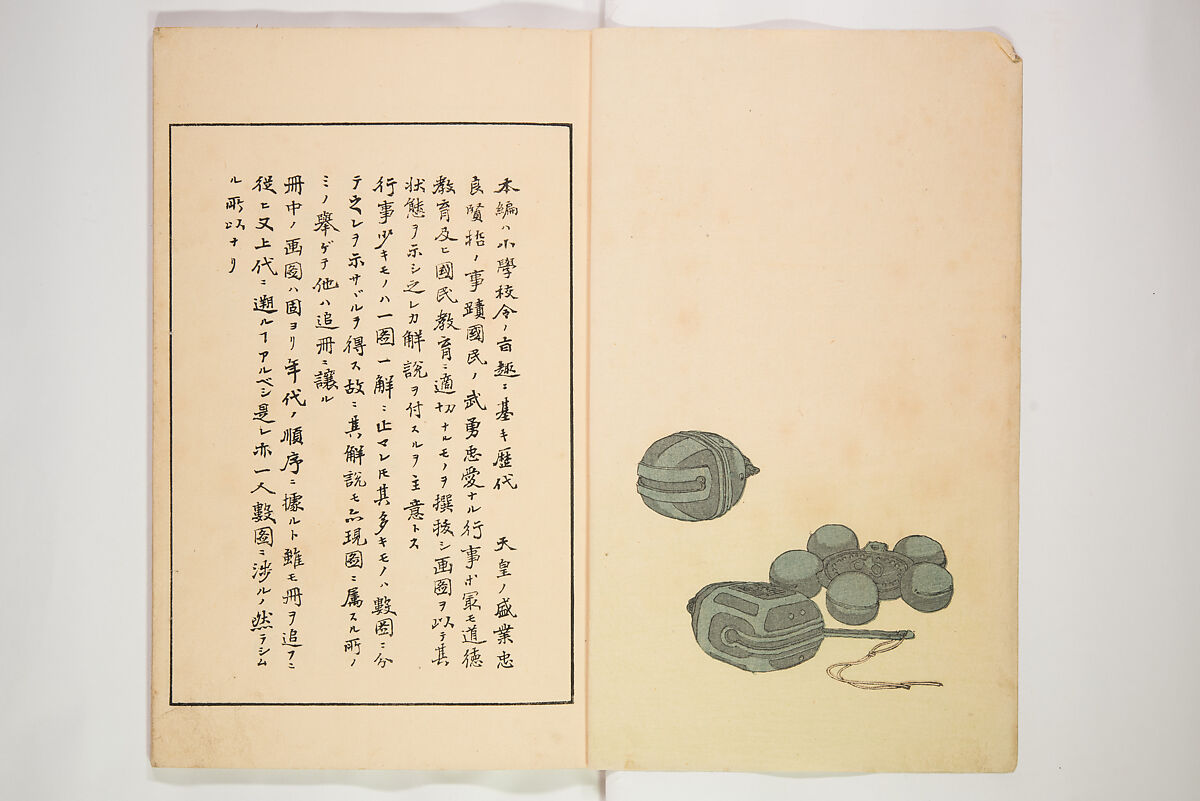 本編ハ小學校令ノ旨趣ニ基キ歴代　天皇ノ盛業忠
良賢哲ノ事蹟國民ノ武勇忠愛ナル行事ホ最モ道徳
教育及ヒ國民教育ニ適切ナルモノヲ撰拔シ画圖ヲ以テ其
状態ヲ示シ之レカ解説ヲ付スルヲ主意トス
行事少キモノハ一圖一解ニ止マレ𪜈其多キモノハ數圖ニ分
テ之レヲ示サヾルヲ得ス故ニ其解説モ亦現圖ニ属スル所ノ
ミノ舉ゲテ他ハ追冊ニ讓ル
冊中ノ画圖ハ固ヨリ年代ノ順序ニ據ルト雖モ冊ヲ追フニ
從ヒ又上代ニ遡ルヿアルベシ是レ亦一人數圖ニ渉ルノ然ラシム
ル所以ナリ